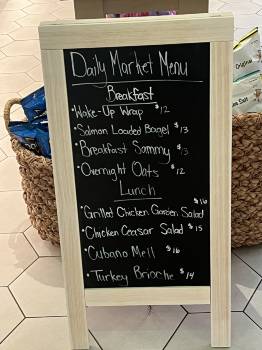 Daily Market Menu
Breakfast
•Wake-Up Wrap $12
•Salmon Loaded Bagel $13
•Breakfast Sammy $13
•Overnight Oats $12
Lunch
•Grilled Chicken Garden Salad $16
•Chicken Ceasar Salad $15
•Cubano Mell $16
•Turkey Brioche $14
Original